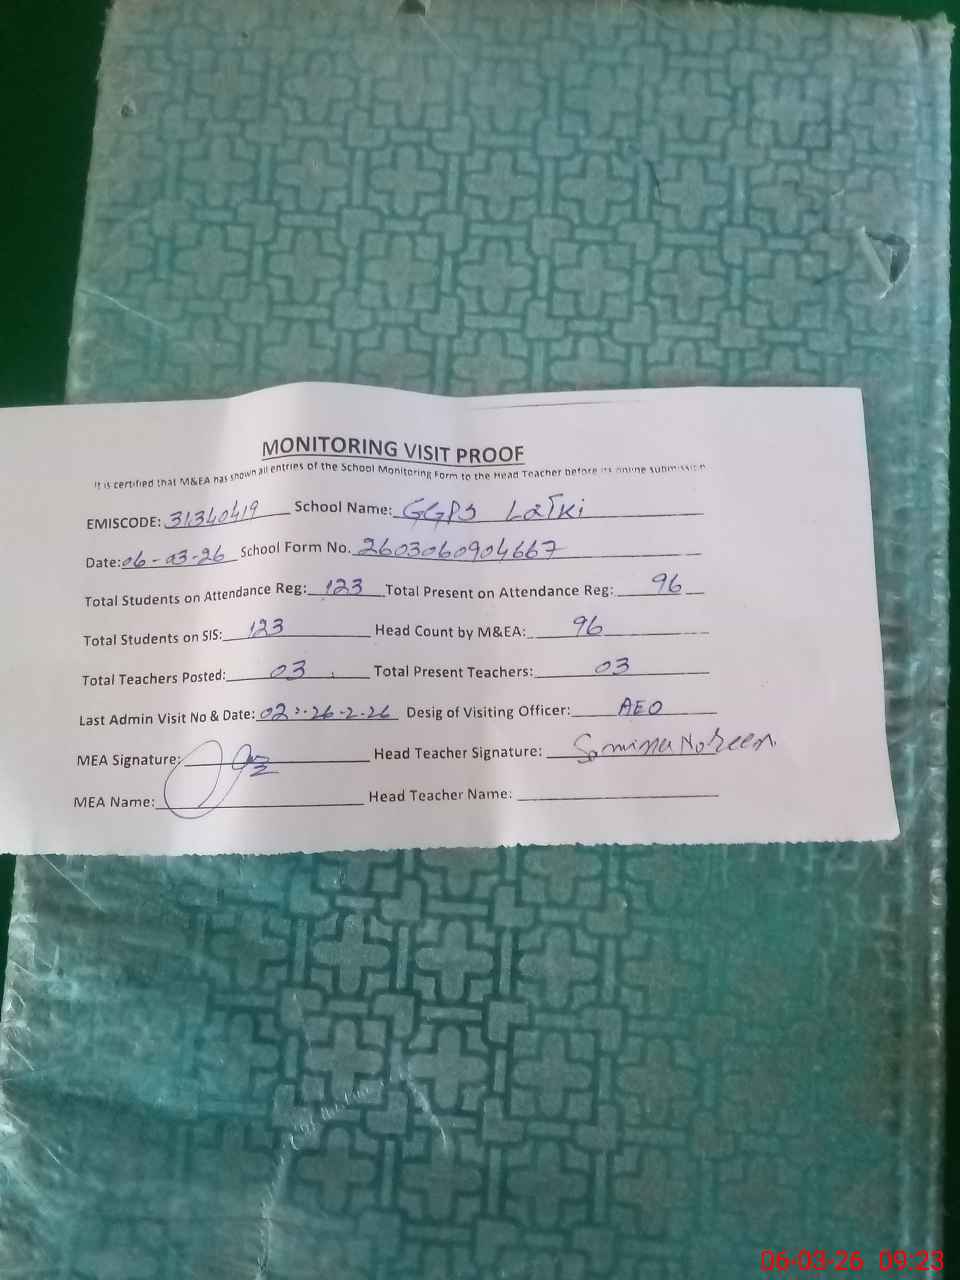 MONITORING VISIT PROOF
It is certified that M&EA has shown all entries of the School Monitoring Form to the Head Teacher before its online submission
EMISCODE: 31340419 School Name: GGPS Latki
Date: 06-03-26 School Form No. 2603060904667
Total Students on Attendance Reg: 123 Total Present on Attendance Reg: 96
Total Students on SIS: 123 Head Count by M&EA: 96
Total Teachers Posted: 03 Total Present Teachers: 03
Last Admin Visit No & Date: 02 26-2-26 Desig of Visiting Officer: AEO
MEA Signature: Head Teacher Signature: Samina Noreen
MEA Name: Head Teacher Name:
06-03-26 09:23